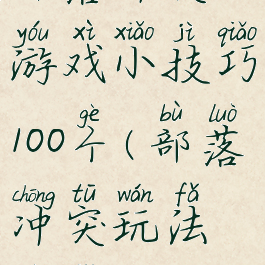 yóu xì xiǎo jì qiǎo
游戏小技巧
gè bù luò
100个(部落
chōng tū wán fǎ
冲突玩法